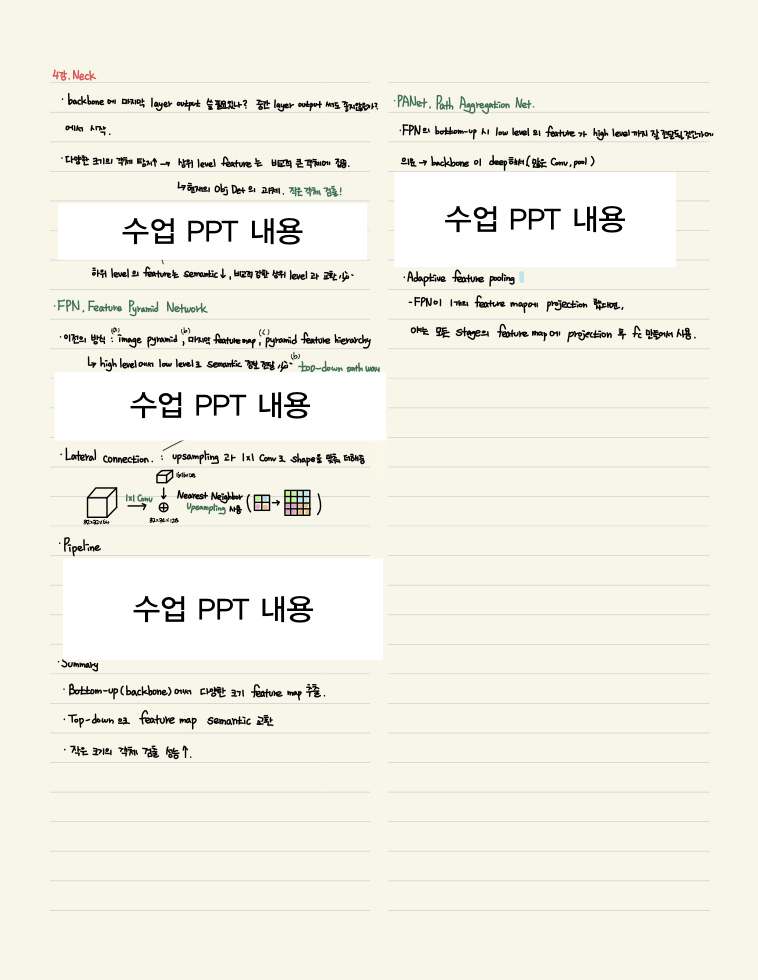 4강. Neck
· backbone에 마지막 layer output 쓸 필요있나? 중간 layer output 써도 좋지않은가?
에서 시작.
· 다양한 크기의 객체 탐지↑ → 상위 level feature는 비교적 큰 객체에 집중.
↳ 현재의 Obj Det의 과제. 작은 객체 검출!
수업 PPT 내용
하위 level의 feature는 semantic↓, 비교적 강한 상위 level과 교환
· FPN, Feature Pyramid Network
· 이전의 방식 : (a) image pyramid, (b) 마지막 feature map, (c) pyramid feature hierarchy
↳ high level에서 low level로 semantic 정보 전달 (b) top-down path way
수업 PPT 내용
· Lateral connection. : upsampling과 1x1 Conv로 shape을 맞춰 더해줌
1x1 Conv
Nearest Neighbor
Upsampling 사용
· Pipeline
수업 PPT 내용
· Summary
· Bottom-up(backbone)에서 다양한 크기 feature map 추출.
· Top-down으로 feature map semantic 교환
· 작은 크기의 객체 검출 성능↑.
· PANet, Path Aggregation Net.
· FPN의 bottom-up 시 low level의 feature가 high level까지 잘 전달될 것인가에
의문 → backbone이 deep해서 (많은 Conv, pool)
수업 PPT 내용
· Adaptive feature pooling
- FPN이 1개의 feature map에 projection 했다면,
얘는 모든 stage의 feature map에 projection 후 fc 만들어서 사용.